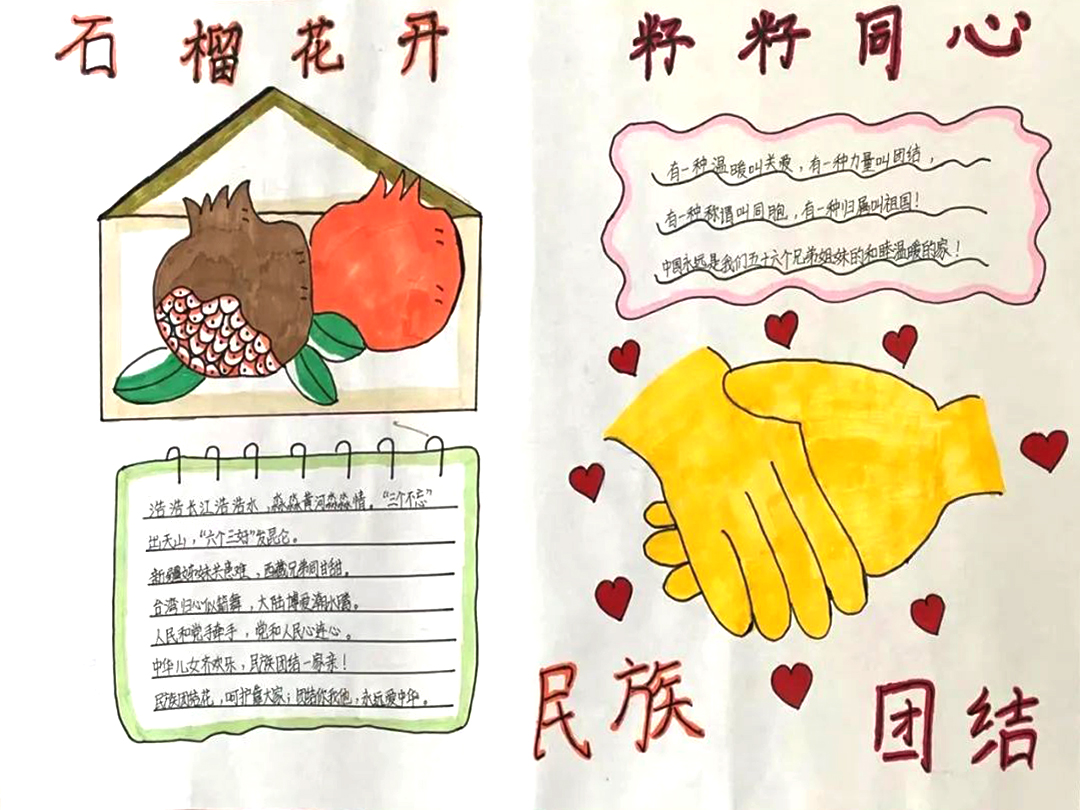 石榴花开
籽籽同心
有一种温暖叫关爱，有一种力量叫团结，
有一种称谓叫同胞，有一种归属叫祖国！
中国永远是我们五十六个兄弟姐妹的和睦温暖的家！
浩浩长江浩浩水，淼淼黄河淼淼情。“三个不忘”
出天山，“六个三好”发昆仑。
新疆姊妹共患难，西藏兄弟同甘甜。
台湾归心似箭舞，大陆博爱潮水腾。
人民和党手牵手，党和人民心连心。
中华儿女齐欢乐，民族团结一家亲！
民族团结花，呵护靠大家；团结你我他，永远爱中华。
民族
团结